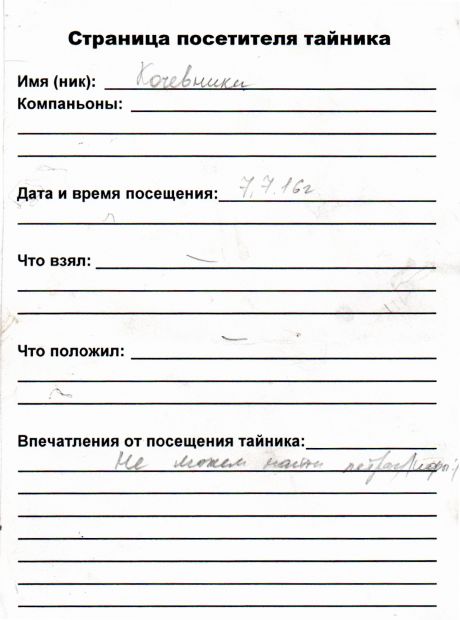 Страница посетителя тайника
Имя (ник): Кочевники
Компаньоны:
Дата и время посещения: 7.7.16г
Что взял: —
Что положил: —
Впечатления от посещения тайника:
Не можем найти петроглифы :(